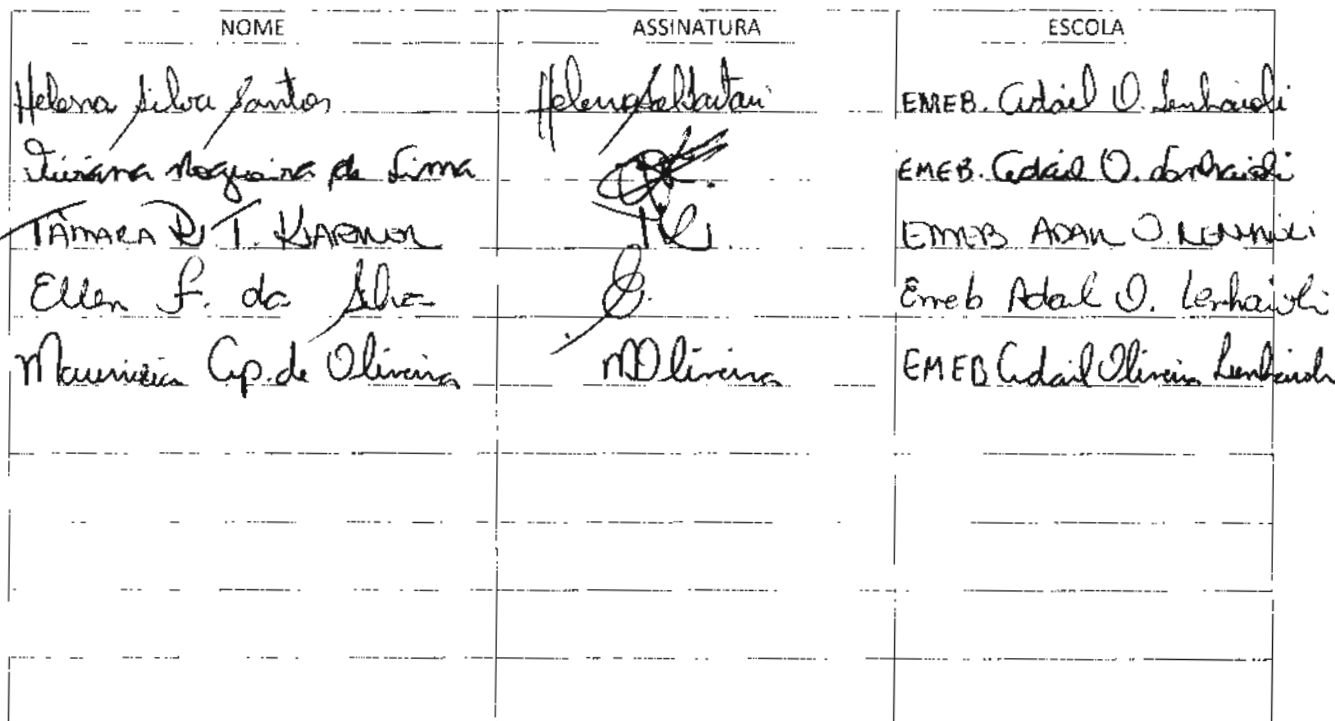 NOME ASSINATURA ESCOLA
Helena Silva Santos EMEB. Adail O. Lenhaioli
Viviana Nogueira de Lima EMEB. Adail O. Lenhaioli
TÂMARA R. T. EMEB ADAIL O. LENHAIOLI
Ellen F. da Silva Emeb Adail O. Lenhaioli
Ap. de Oliveira MOliveira EMEB Adail Oliveira Lenhaioli